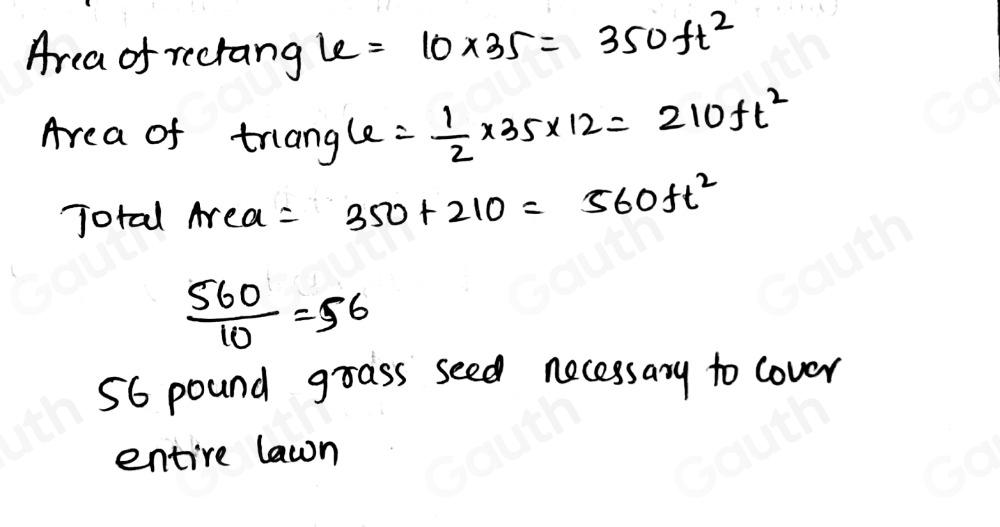 Area of rectangle = 10 × 35 = 350 ft²
Area of triangle = 1/2 × 35 × 12 = 210 ft²
Total Area = 350 + 210 = 560 ft²
560/10 = 56
56 pound grass seed necessary to cover
entire lawn
Gauth